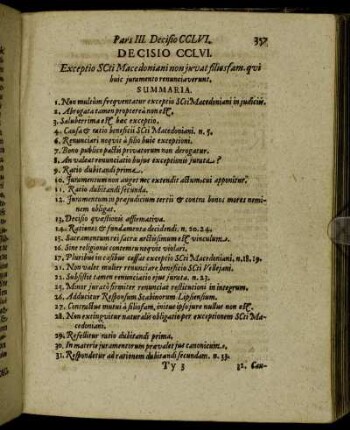 Pars III. Decisio CCLVI. 357
DECISIO CCLVI.
Exceptio SCti Macedoniani non juvat filiosfam. qvi
huic juramento renunciaverunt.
SUMMARIA.
1. Non multùm freqventatur exceptio SCti Macedoniani in judiciis.
2. Abrogata tamen propterea non est.
3. Saluberrima est hæc exceptio.
4. Causa & ratio beneficii SCti Macedoniani. n. 5.
6. Renunciari neqvit à filio huic exceptioni.
7. Bono publico pactis privatorum non derogatur.
8. An valeat renunciatio hujus exceptionis jurata?
9. Ratio dubitandi prima.
10. Juramentum non auget nec extendit actum cui apponitur.
11. Ratio dubitandi secunda.
12. Juramentum in præjudicium tertii & contra bonos mores neminem
obligat.
13. Decisio qvæstionis affirmativa.
14. Rationes & fundamenta decidendi. n. 20. 24.
15. Sacramentum rei sacræ arctissimum est vinculum.
16. Sine religionis contemtu neqvit violari.
17. Pluribus in casibus cessat exceptio SCti Macedoniani, n. 18. 19.
21. Non valet mulier renunciare beneficio SCti Vellejani.
22. Subsistit tamen renunciatio ejus jurata. n. 23.
25. Minor juratò firmiter renunciat restitutioni in integrum.
26. Adducitur Responsum Scabinorum Lipsiensium.
27. Contractus mutui à filiofam. initus ipso jure nullus non est.
28. Non extingvitur naturalis obligatio per exceptionem SCti Macedoniani.
29. Refellitur ratio dubitandi prima.
30. In materia juramentorum prævalet jus canonicum.
31. Respondetur ad rationem dubitandi secundam. n. 33.
Yy 3 32. Cau-